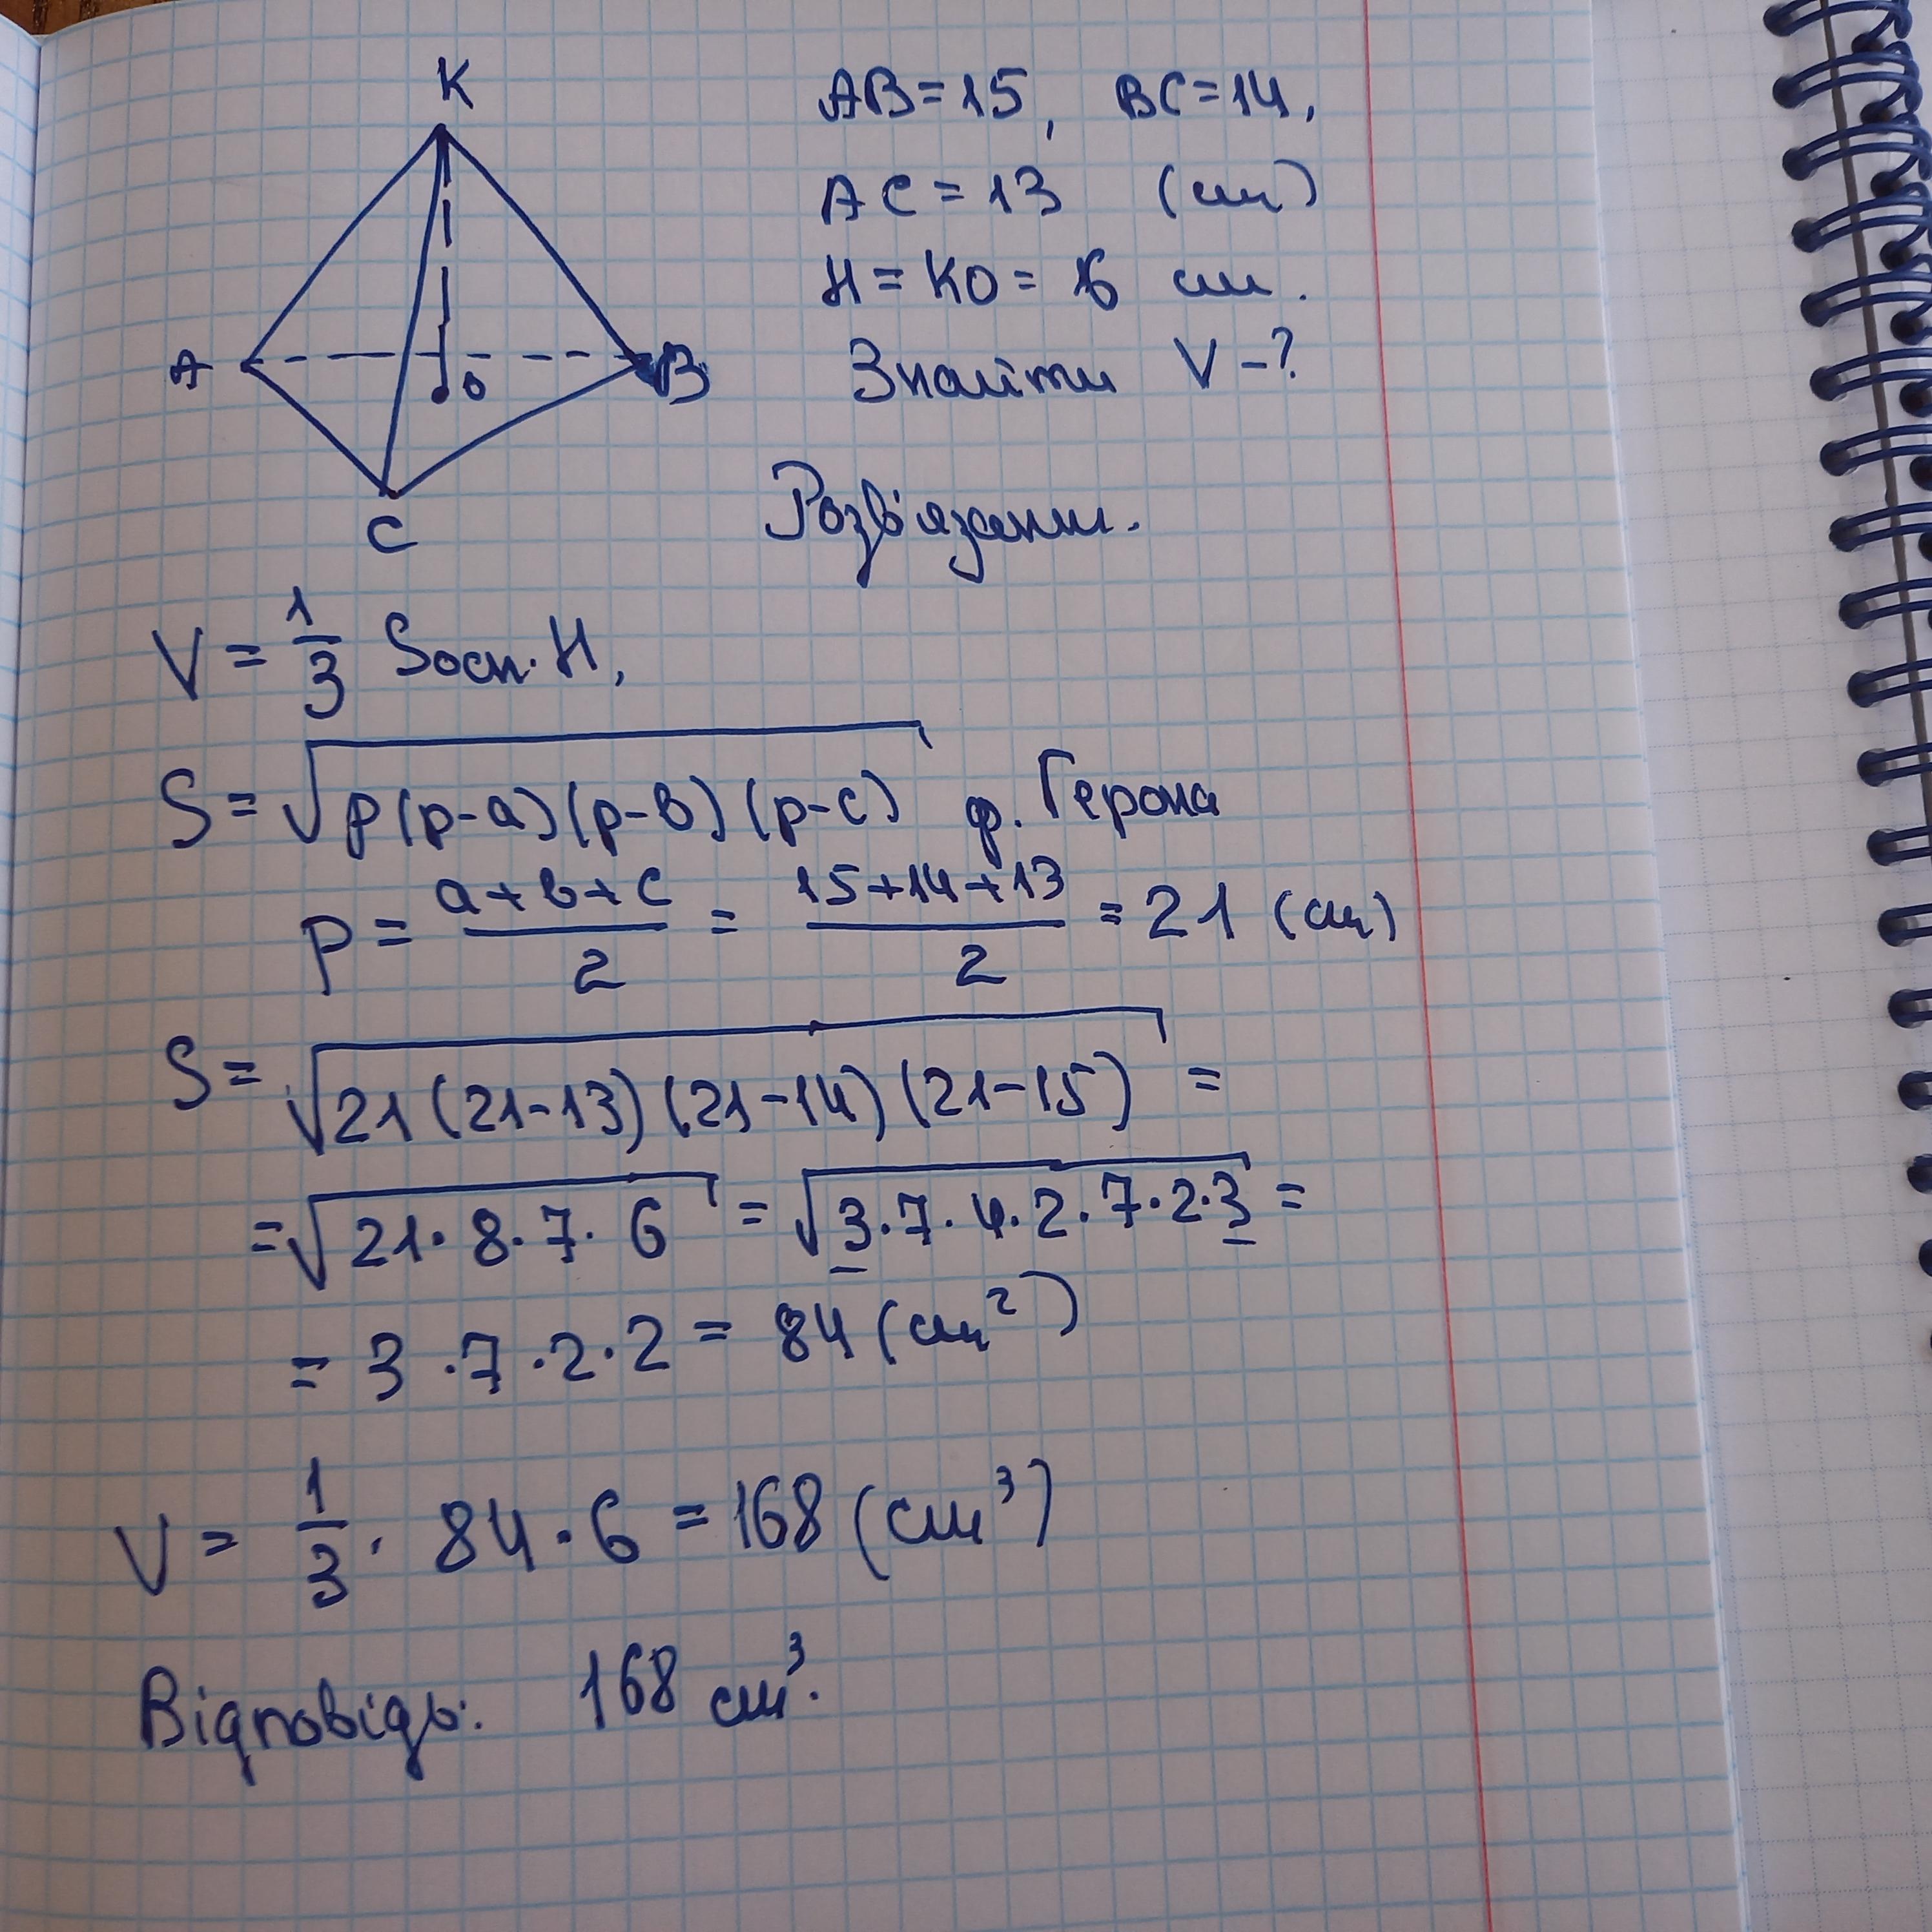 K
A
B
O
C
AB=15, BC=14,
AC=13 (см)
H=KO=6 см.
Знайти V-?
Розв'язання.
V=1/3 Sосн·H,
S=√p(p-a)(p-в)(p-c) ф. Герона
p=a+в+c/2=15+14+13/2=21 (см)
S=√21(21-13)(21-14)(21-15)=
=√21·8·7·6=√3·7·4·2·7·2·3=
=3·7·2·2=84(см²)
V=1/3·84·6=168(см³)
Відповідь: 168 см³.